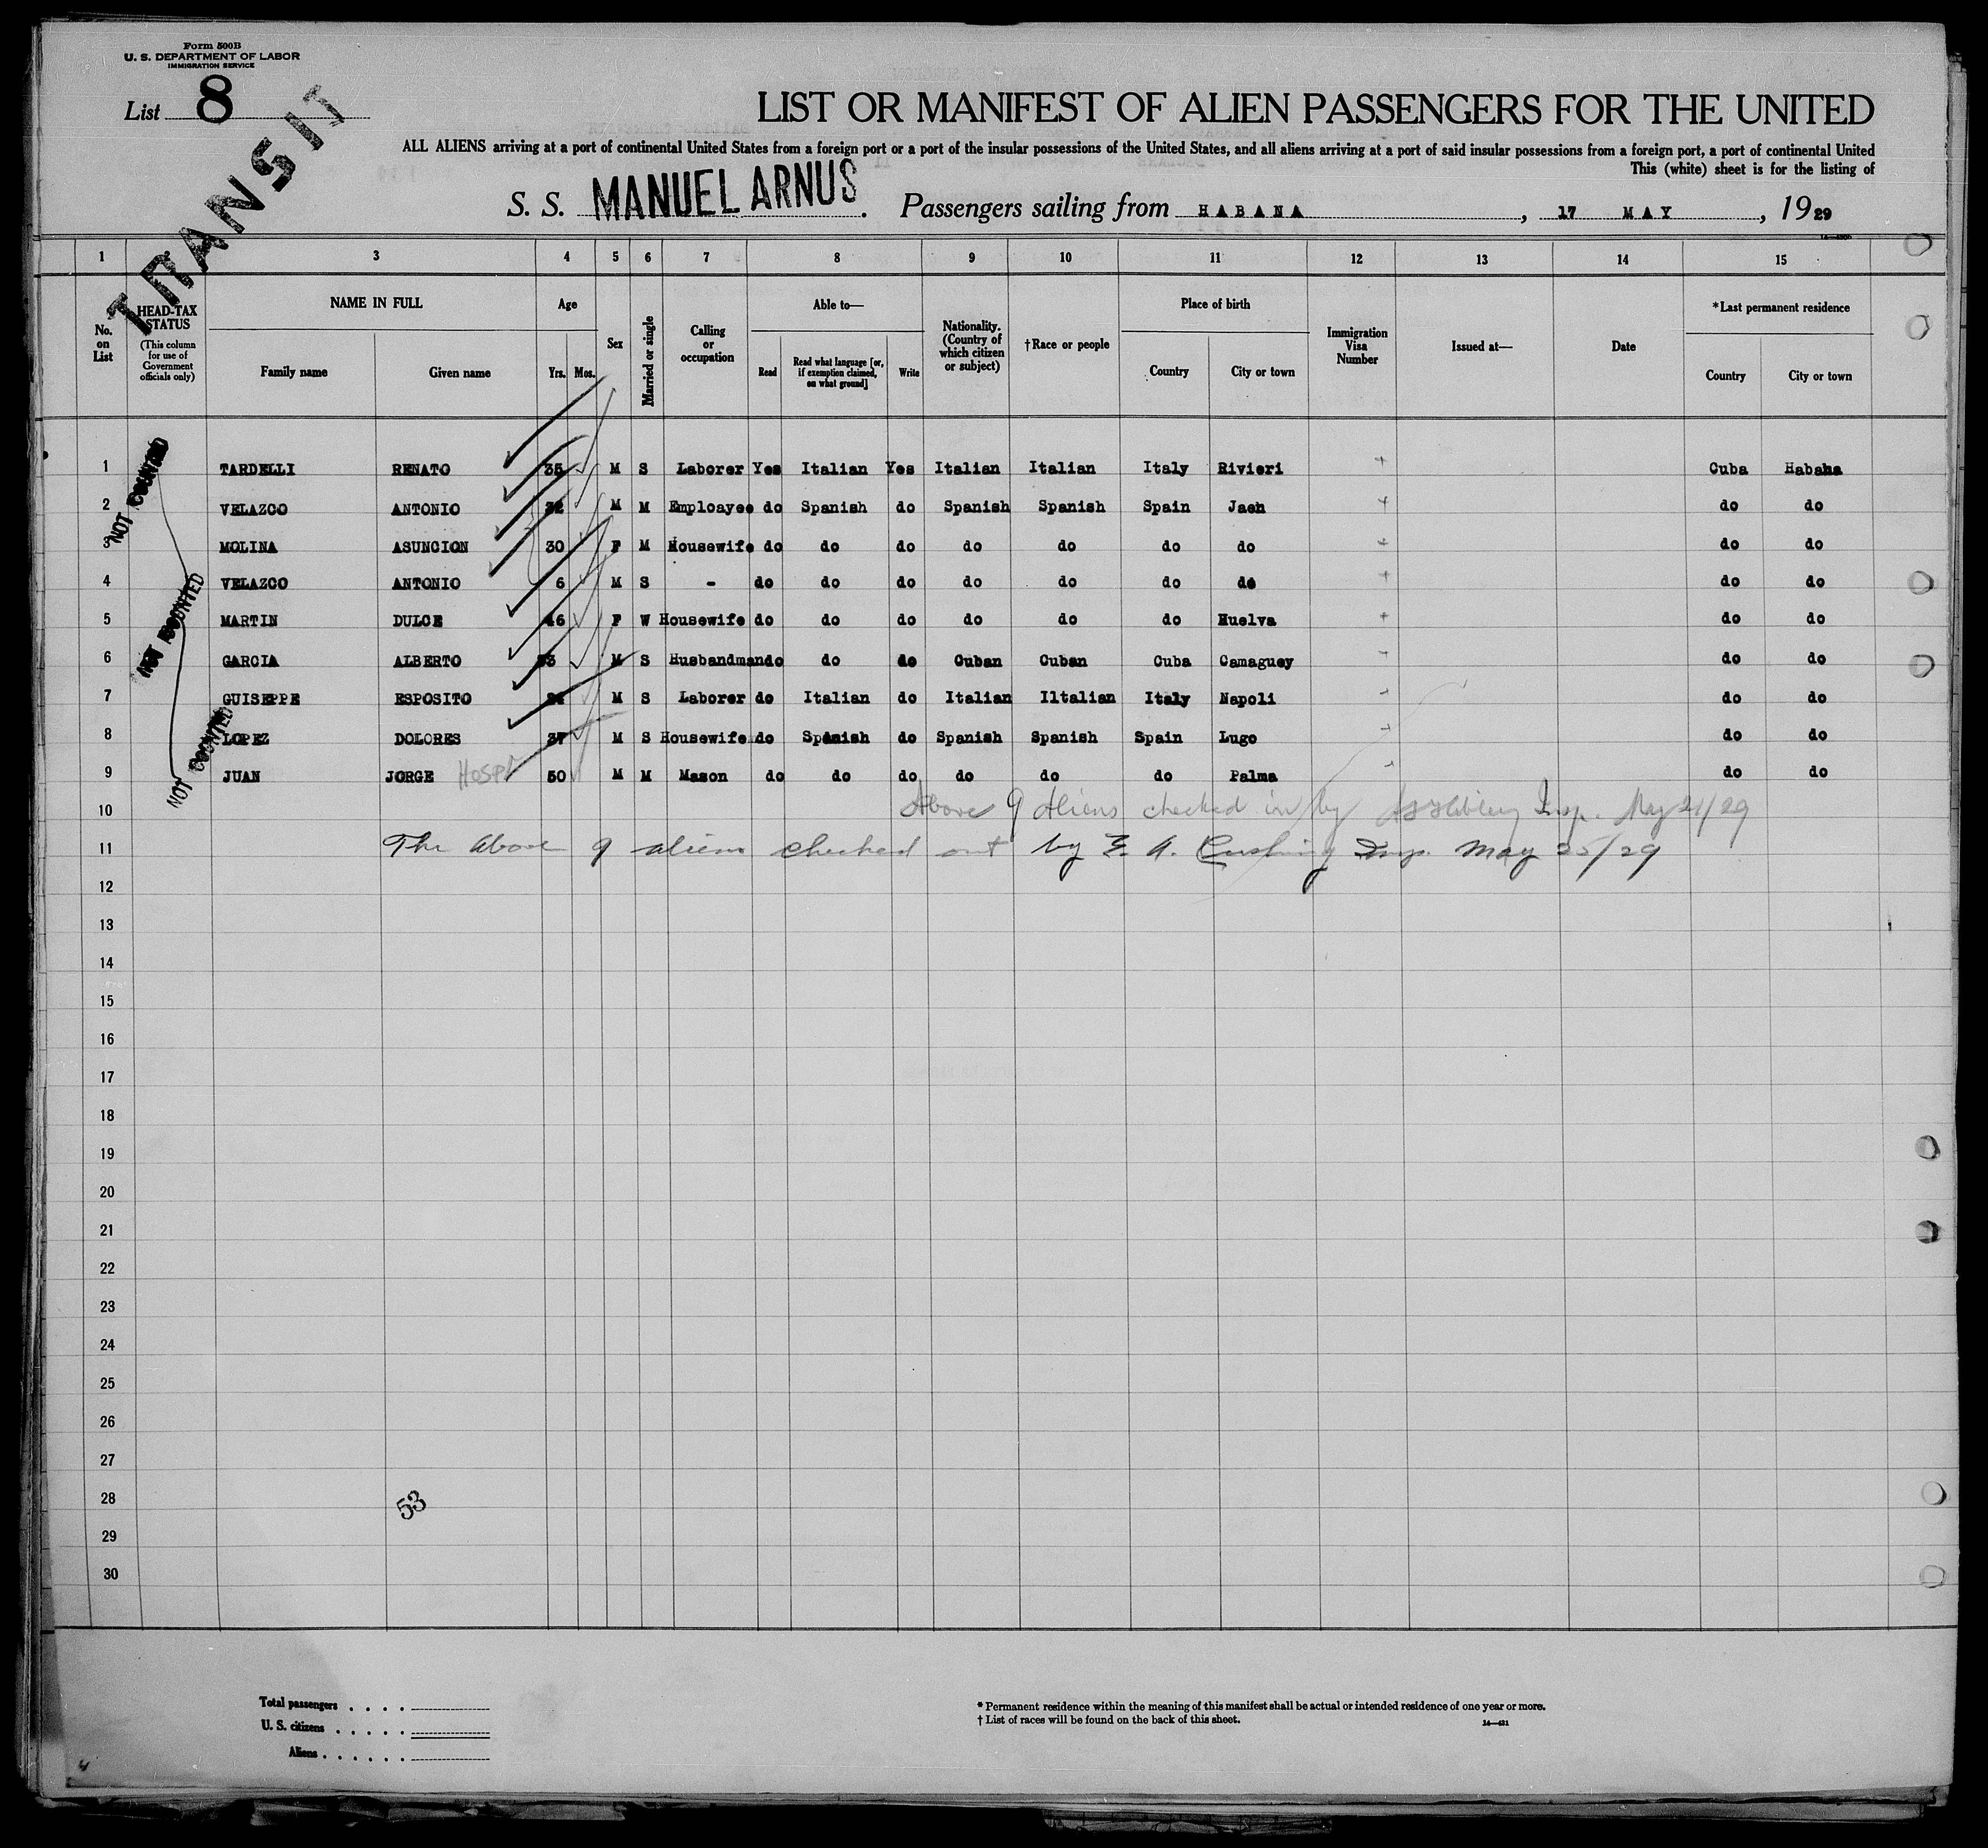 Form 500B
U. S. DEPARTMENT OF LABOR
IMMIGRATION SERVICE
List 8
TRANSIT
LIST OR MANIFEST OF ALIEN PASSENGERS FOR THE UNITED
ALL ALIENS arriving at a port of continental United States from a foreign port or a port of the insular possessions of the United States, and all aliens arriving at a port of said insular possessions from a foreign port, a port of continental United
This (white) sheet is for the listing of
S. S. MANUEL ARNUS. Passengers sailing from HABANA, 17 MAY, 1929
1 2 3 4 5 6 7 8 9 10 11 12 13 14 15
No. on List
HEAD-TAX STATUS (This column for use of Government officials only)
NAME IN FULL
Family name Given name
Age
Yrs. Mos.
Sex
Married or single
Calling or occupation
Able to—
Read
Read what language [or, if exemption claimed, on what ground]
Write
Nationality. (Country of which citizen or subject)
†Race or people
Place of birth
Country City or town
Immigration Visa Number
Issued at—
Date
*Last permanent residence
Country City or town
NOT COUNTED
NOT COUNTED
NOT COUNTED
1 TARDELLI RENATO 35 M S Laborer Yes Italian Yes Italian Italian Italy Rivieri Cuba Habana
2 VELAZCO ANTONIO 32 M M Emploayee do Spanish do Spanish Spanish Spain Jaen do do
3 MOLINA ASUNCION 30 F M Housewife do do do do do do do do do
4 VELAZCO ANTONIO 6 M S - do do do do do do do do do
5 MARTIN DULCE 46 F W Housewife do do do do do do Huelva do do
6 GARCIA ALBERTO 33 M S Husbandman do do do Cuban Cuban Cuba Camaguey do do
7 GUISEPPE ESPOSITO M S Laborer do Italian do Italian Iltalian Italy Napoli do do
8 LOPEZ DOLORES 37 M S Housewife do Spanish do Spanish Spanish Spain Lugo do do
9 JUAN JORGE HOSP 50 M M Mason do do do do do do Palma do do
10 Above 9 Aliens checked in by Insp. May 21/29
11 The above 9 aliens checked out by E. A. Cushing Insp. May 25/29
12
13
14
15
16
17
18
19
20
21
22
23
24
25
26
27
28 53
29
30
Total passengers . . . .
U. S. citizens . . . . .
Aliens . . . . . .
* Permanent residence within the meaning of this manifest shall be actual or intended residence of one year or more.
† List of races will be found on the back of this sheet.
14—431